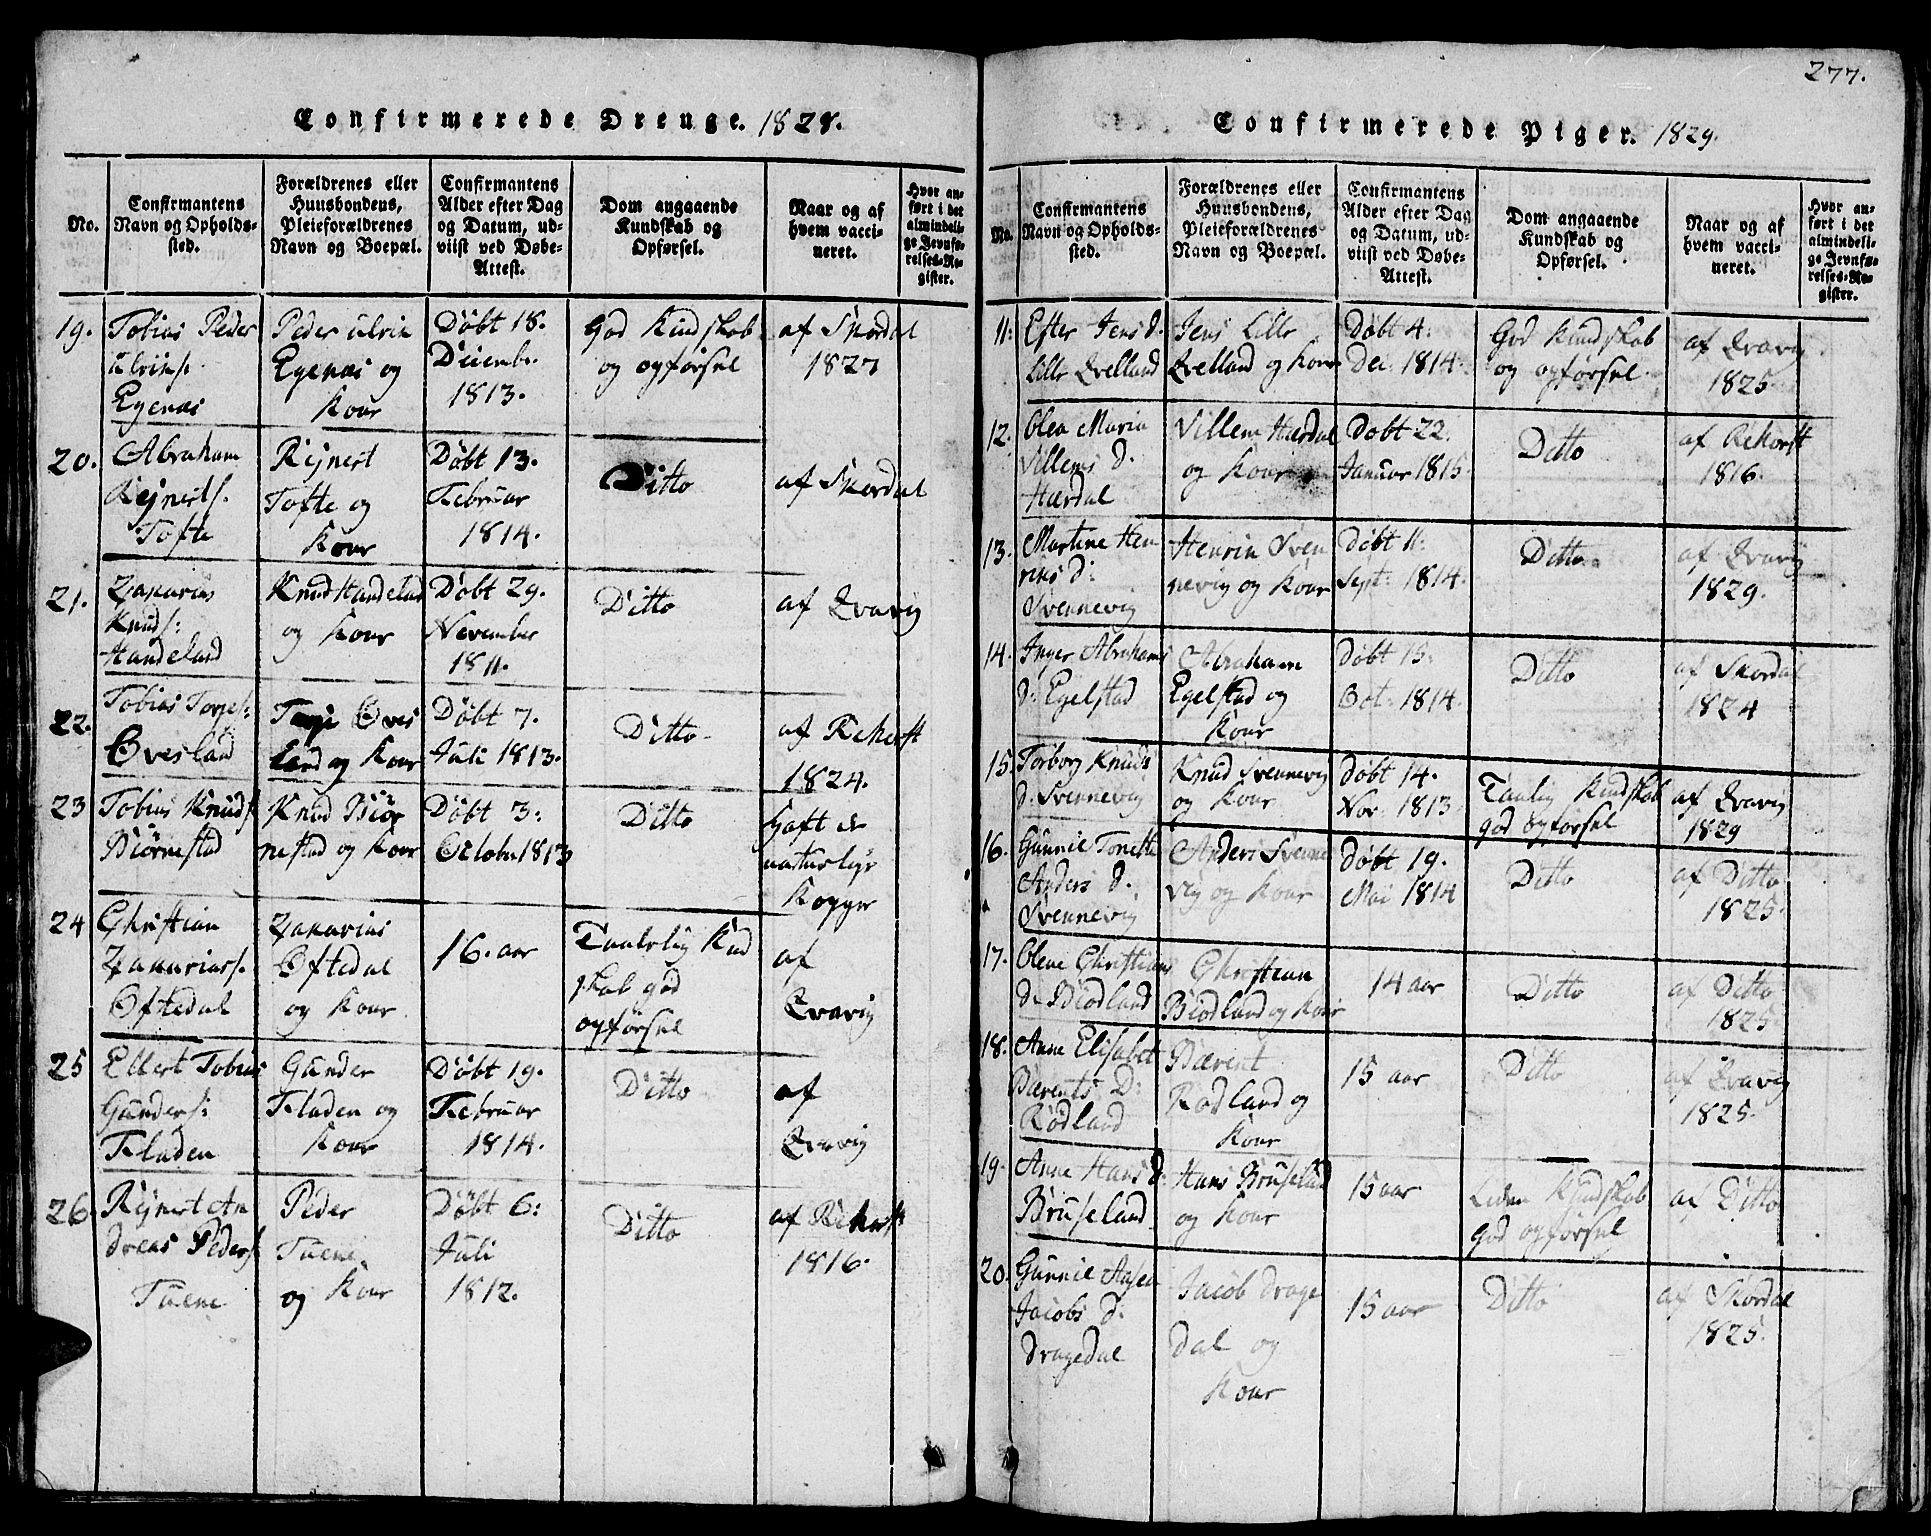 277.
Confirmerede Drenge. 1828.
No.
Confirmantens Navn og Opholds-sted.
Forældrenes eller Huusbondens, Pleieforældrenes Navn og Boepæl.
Confirmantens Alder efter Dag og Datum, ud-viist ved Døbe-Attest.
Dom angaaende Kundskab og Opførsel.
Naar og af hvem vacci-neret.
Hvor an-ført i det almindeli-ge Jevnfø-relses-Re-gister.
19.
Tobias Peder
Ulriks.
Egenæs
Peder Ulrik
Egenæs og
Kone
Døbt 18.
Deiembr.
1813.
God Kundskab
og opførsel
af Skordal
1827
20.
Abraham
Rejnerts.
Tofte
Rejnert
Tofte og
Kone
Døbt 13.
Februar
1814.
Ditto
af Skordal
21.
Zakarias
Knuds:
Handeland
Knud Handeland
og Kone
Døbt 29.
November
1811.
Ditto
af Qvavig
22.
Tobias Torjes:
Øvesland
Torje Øves
land og Kone
Døbt 7.
Juli 1813.
Ditto
af Rehorst
1824.
23
Tobias Knuds
Biørnestad
Knud Biør
nestad og Kone
Døbt 3:
October 1813
Ditto
haft de
naturlige
Kopper
24
Christian
Zakarias.
Oftedal
Zakarias
Oftedal
og Kone
16. aar
Taalelig Kund
skab god
opførsel
af
Qvavig
25
Elbert Tobias
Gunders:
Fladen
Gunder
Fladen og
Kone
Døbt 19.
Februar
1814.
Ditto
af
Qvavig
26.
Rejnert An
dreas Peders.
Tuene
Peder
Tuene
og Kone
Døbt 6:
Juli
1812.
Ditto
af Rehorst
1816.
Confirmerede Piger. 1829.
No.
Confirmantens Navn og Opholds-sted.
Forældrenes eller Huusbondens, Pleieforældrenes Navn og Boepæl.
Confirmantens Alder efter Dag og Datum, ud-viist ved Døbe-Attest.
Dom angaaende Kundskab og Opførsel.
Naar og af hvem vacci-neret.
Hvor an-ført i det almindeli-ge Jevnfø-relses-Re-gister.
11:
Ester Jens d.
Lille Qvelland
Jens Lille
Qvelland og Kone
Døbt 4:
Dei. 1814.
God Kundskab
og opførsel.
af Qvavig
1825
12.
Olea Maria
Villems d.
Hærdal
Villem Hærdal
og Kone
Døbt 22.
Januar 1815
Ditto
af Rehorst
1816.
13.
Martine Hen
riks d:
Svennevig
Henrik Sven
nevig og Kone
Døbt 11:
Sept: 1814.
Ditto
af Qvavig
1829.
14.
Inger Abrahams
d: Egelstad
Abraham
Egelstad og
Kone
Døbt 15:
Oct: 1814.
Ditto
af Skordal
1824
15.
Torborg Knuds
d. Svennevig
Knud Svennevig
og Kone
Døbt 14.
Nov. 1813
Taalig Kundskab
god opførsel
af Qvavig
1829
16.
Gunnil Tonette
Anders d.
Svennevig
Anders Svenne
vig og Kone
Døbt 19.
Mai 1814
Ditto
af Ditto
1825.
17.
Olene Christians
d. Biodland
Christian
Biodland og Kone
14 aar
Ditto
af Ditto
1825.
18.
Anne Elisabet
Bærents d:
Rødland
Bærent
Rødland og
Kone
15 aar
Ditto
af Qvavig
1825.
19.
Anne Hans d:
Bruseland
Hans Bruseland
og Kone
15 aar
Liden Kundskab
god opførsel
af Ditto
20.
Gunnil Aasen
Jacobs d:
Dragedal
Jacob Drage
dal og
Kone
15 aar
Ditto
af Skordal
1825.